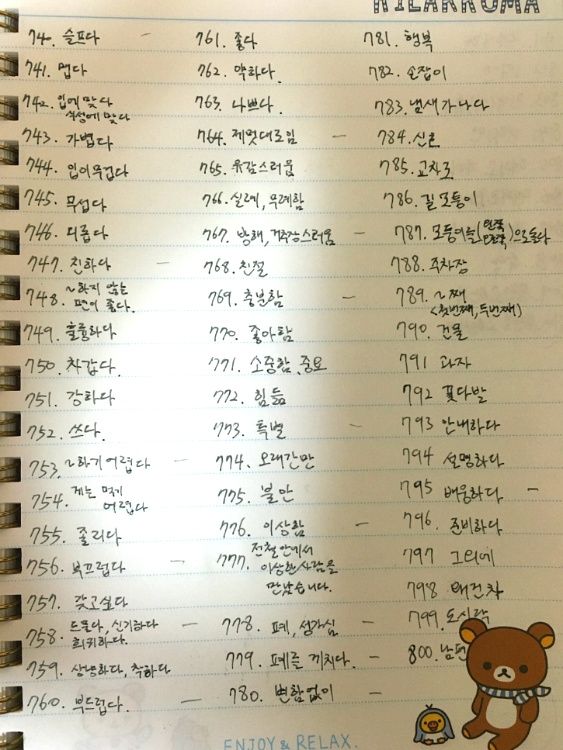 RILAKKUMA
74. 슬프다
741. 맵다
742. 입에 맞다
적성에 맞다
743. 가볍다
744. 입이무겁다
745. 무섭다
746. 더럽다
747. 친하다 -
748. ~하지 않는
편이 좋다.
749. 훌륭하다
750. 차갑다.
751. 강하다
752. 쓰다.
753. ~하기 어렵다 -
754. 게는 먹기
어렵다
755. 졸리다
756. 부끄럽다 -
757. 갖고싶다
758. 드물다, 신기하다 -
희귀하다.
759. 상냥하다, 착하다
760. 부드럽다. -
761. 좋다
762. 약하다.
763. 나쁘다.
764. 제멋대로임 -
765. 유감스러움
766. 실례, 무례함
767. 방해, 거추장스러움 -
768. 친절
769. 충분함 -
770. 좋아함
771. 소중함, 중요
772. 힘듦
773. 특별 -
774. 오래간만
775. 불만
776. 이상함 -
777. 전철안에서
이상한사람을
만났습니다.
778. 폐, 성가심 -
779. 폐를 끼치다. -
780. 변함없이 -
781. 행복
782. 손잡이
783. 냄새가나다
784. 신호
785. 교차로
786. 길모퉁이
787. 모퉁이를(왼쪽
오른쪽)으로돌다
788. 주차장
789. ~째
(첫번째, 두번째)
790. 건물
791 과자
792 꽃다발
793 안내하다
794 설명하다
795 배웅하다 -
796. 준비하다
797 그외에
798 왜건차
799. 도시락
800. 남편
ENJOY & RELAX.